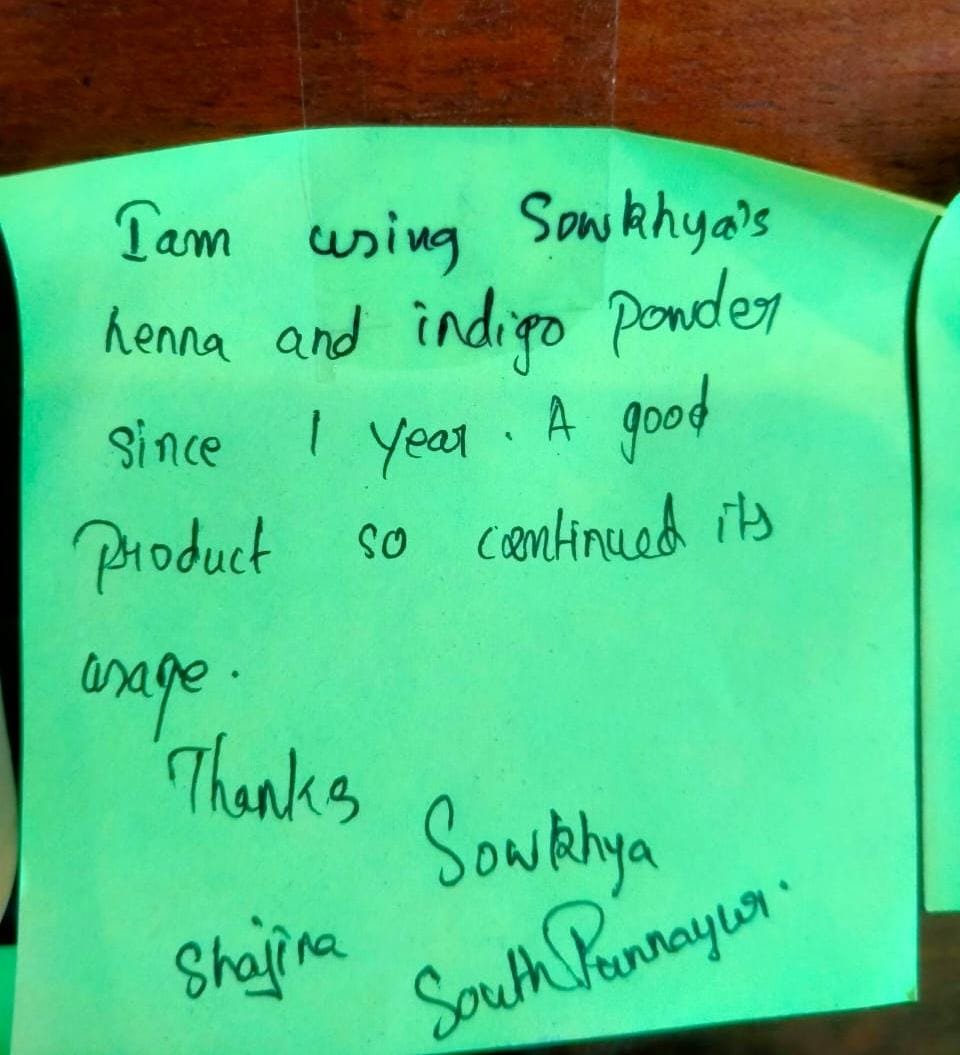 I am using Sowkhya's
henna and indigo powder
since 1 year. A good
Product so continued its
usage.
Thanks
Sowkhya
Shajira
South Punnayur.